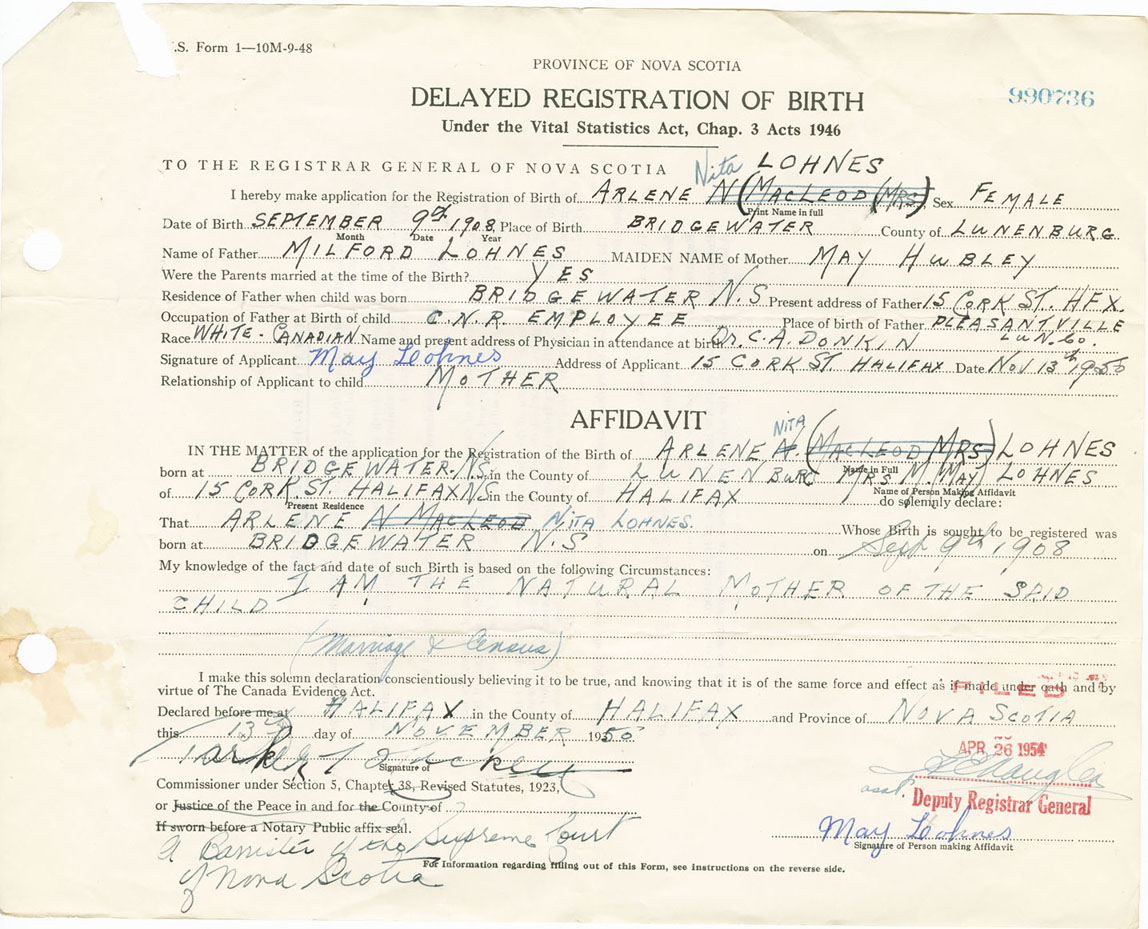 .S. Form 1—10M-9-48
PROVINCE OF NOVA SCOTIA
DELAYED REGISTRATION OF BIRTH
990736
Under the Vital Statistics Act, Chap. 3 Acts 1946
TO THE REGISTRAR GENERAL OF NOVA SCOTIA Nita LOHNES
I hereby make application for the Registration of Birth of ARLENE N (MACLEOD (MRS) Sex FEMALE
Print Name in full
Date of Birth SEPTEMBER 9th 1908 Place of Birth BRIDGEWATER County of LUNENBURG
Month Date Year
Name of Father MILFORD LOHNES MAIDEN NAME of Mother MAY HUBLEY
Were the Parents married at the time of the Birth? YES
Residence of Father when child was born BRIDGEWATER N.S Present address of Father 15 CORK ST. HFX.
Occupation of Father at Birth of child C.N.R. EMPLOYEE Place of birth of Father PLEASANTVILLE
LUN. CO.
Race WHITE - CANADIAN Name and present address of Physician in attendance at birth Dr. C.A. DONKIN
Signature of Applicant May Lohnes Address of Applicant 15 CORK ST. HALIFAX Date NOV 13th 1950
Relationship of Applicant to child MOTHER
AFFIDAVIT
NITA
IN THE MATTER of the application for the Registration of the Birth of ARLENE N. (MACLEOD MRS) LOHNES
Name in Full
born at BRIDGEWATER N.S. in the County of LUNENBURG MRS M. MAY LOHNES
Name of Person Making Affidavit
of 15 CORK ST. HALIFAX N.S in the County of HALIFAX do solemnly declare:
Present Residence
That ARLENE N MACLEOD NITA LOHNES. Whose Birth is sought to be registered was
born at BRIDGEWATER N.S on Sept 9th 1908
My knowledge of the fact and date of such Birth is based on the following Circumstances:
I AM THE NATURAL MOTHER OF THE SAID
CHILD
(Marriage & Census)
I make this solemn declaration conscientiously believing it to be true, and knowing that it is of the same force and effect as if made under oath and by
virtue of The Canada Evidence Act.
FILED
Declared before me at HALIFAX in the County of HALIFAX and Province of NOVA SCOTIA
this 13th day of NOVEMBER 1950
APR 26 1954
Signature of
Commissioner under Section 5, Chapter 38, Revised Statutes, 1923,
asst. Deputy Registrar General
or Justice of the Peace in and for the County of
If sworn before a Notary Public affix seal.
May Lohnes
Signature of Person making Affidavit
A Barrister of the Supreme Court
of Nova Scotia
For Information regarding filling out of this Form, see instructions on the reverse side.